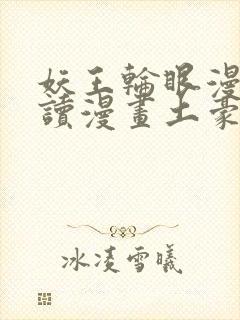 妖王輪眼漫
讀漫畫土豪
冰凌雪曦